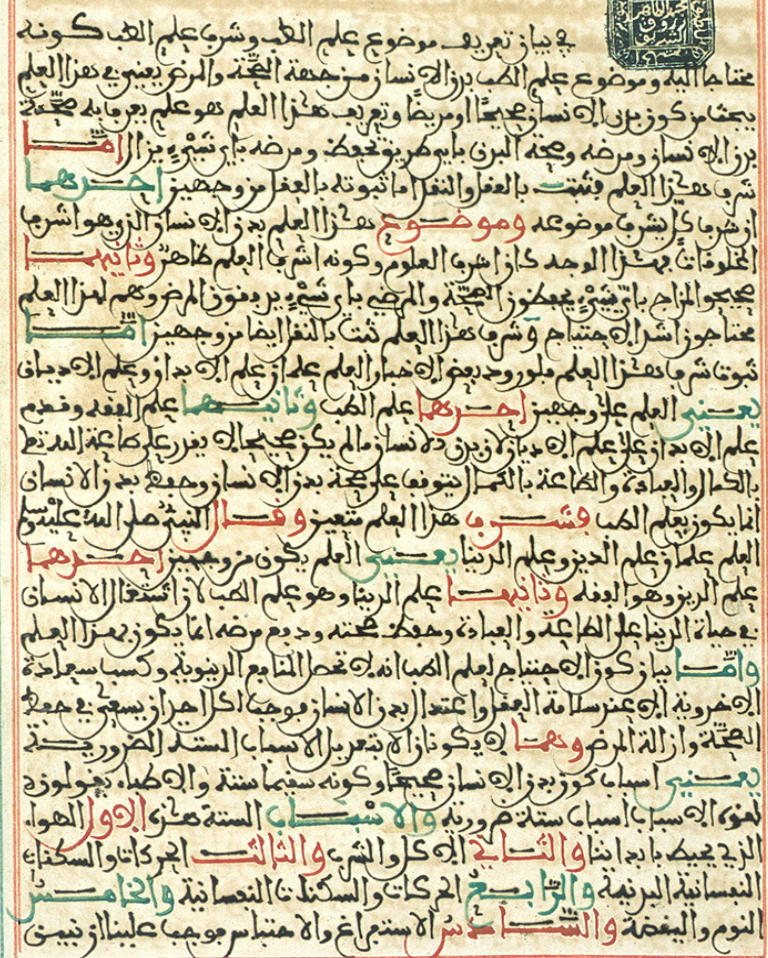 في بيان تعريف موضوع علم الطب وشرف علم الطب كونه
محتاجا اليه وموضوع علم الطب بدن الانسان من جهة الصحة والمرض يعني في هذا العلم
يبحث من كون بدن الانسان صحيحا او مريضا وتعريف هذا العلم هو علم يعرف به صحة
بدن الانسان ومرضه وصحة البدن باي طريق تحفظ ومرضه باي شيء يزال امّا
شرف هذا العلم فثبت بالعقل والنقل اما ثبوته بالعقل من وجهين احدهما
ان شرف كل بشرف موضوعه وموضوع هذا العلم بدن الانسان الذي هو اشرف
المخلوقات بهذا الوجه كان اشرف العلوم وكونه اشرف العلم ظاهر وثانيهما
صحيحو المزاج باي شيء يحفظون الصحة والمرضى باي شيء يدفعون المرض وهم لهذا العلم
محتاجون اشد الاحتياج وشرف هذا العلم ثبت بالنقل ايضا من وجهين امّا
ثبوت شرف هذا العلم فلورود بعض الاخبار العلم علمان علم الابدان وعلم الاديان
يعني العلم على وجهين احدهما علم الطب وثانيهما علم الفقه وقدم
علم الابدان على علم الاديان لان بدن الانسان ما لم يكن صحيحا لا يقدر على طاعة الله تعالى
بالكمال والعبادة والطاعة بالكمال يتوقف على صحة بدن الانسان وحفظ بدن الانسان
انما يكون بعلم الطب فشرف هذا العلم متعين وقال النبي صلى الله عليه وسلم
العلم علمان علم الدين وعلم الدنيا يعني العلم يكون من وجهين احدهما
علم الدين وهو الفقه وثانيهما علم الدنيا وهو علم الطب لان اشتغال الانسان
في حياة الدنيا على الطاعة والعبادة وحفظ صحته ودفع مرضه انما يكون بهذا العلم
وامّا بيان كون الاحتياج لعلم الطب انه لا تحصل المنافع الدنيوية وكسب سعادة
الاخروية الا عند سلامة العقل واعتدال بدن الانسان فوجب لكل احد ان يسعى في حفظ
الصحة وازالة المرض وهما لا يكونان الا بتعديل الاسباب الستة الضرورية
يعني اسباب كون بدن الانسان صحيحا وكونه سقيما ستة والاطباء يقولون
لهذه الاسباب اسباب ستة ضرورية والاسباب الستة هذه الاول الهواء
الذي يحيط بابداننا والثاني الاكل والشرب والثالث الحركات والسكنات
النفسانية البدنية والرابع الحركات والسكنات النفسانية والخامس
النوم واليقظة والسادس الاستفراغ والاحتباس فوجب علينا ان نبين